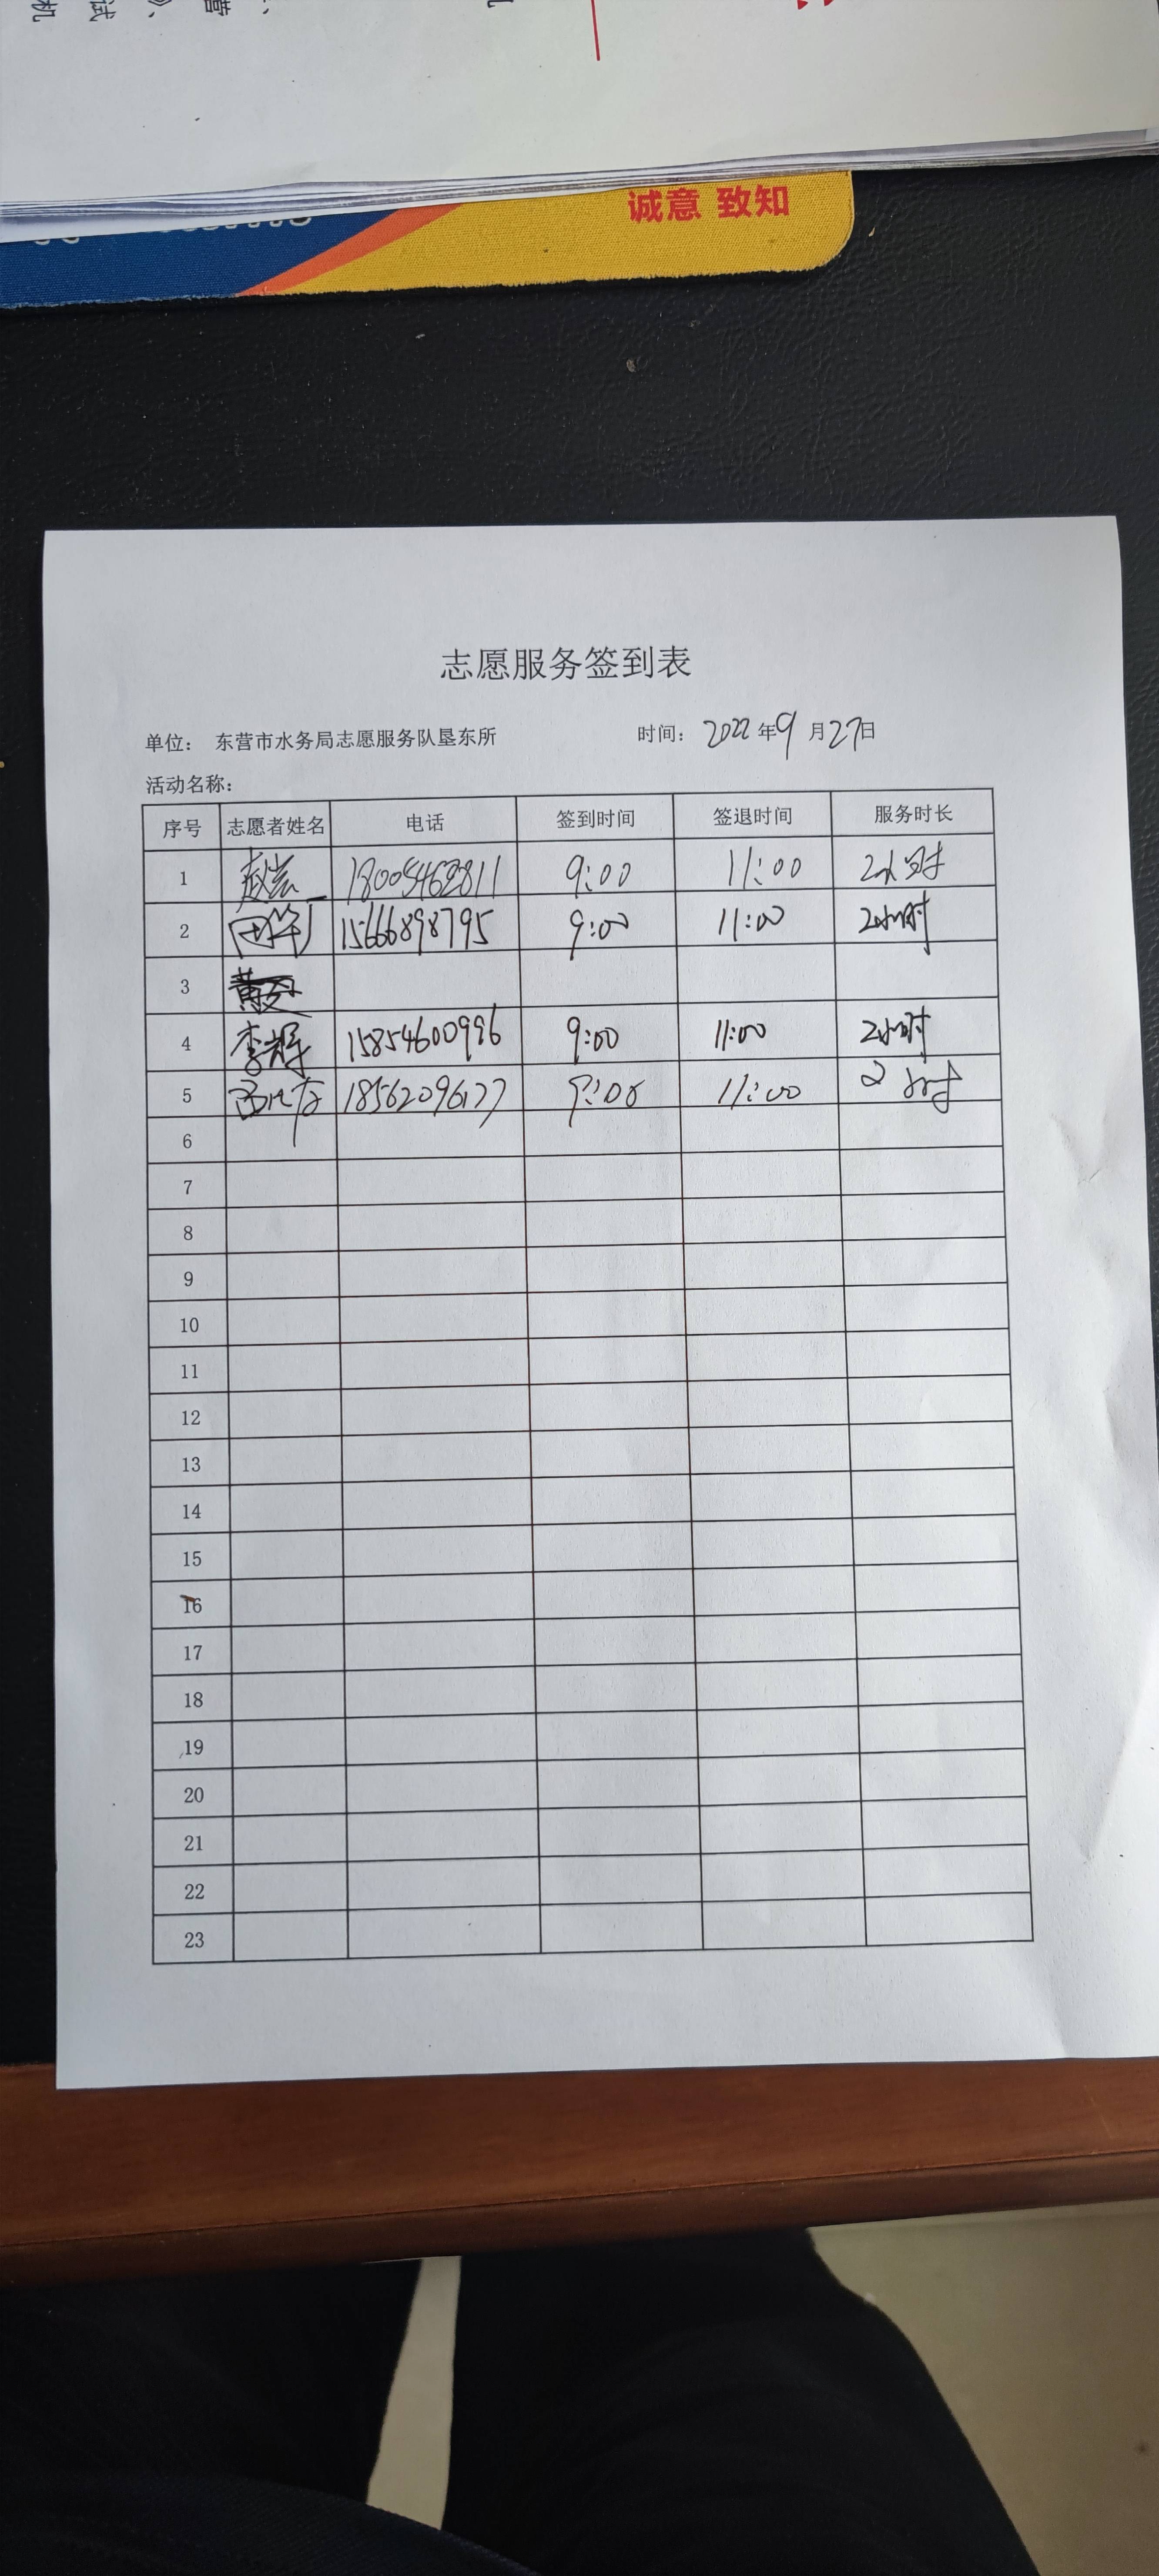 诚意 致知
志愿服务签到表
单位： 东营市水务局志愿服务队垦东所 时间： 2022年9月27日
活动名称：
序号 志愿者姓名 电话 签到时间 签退时间 服务时长
1 18005462811 9:00 11:00 2小时
2 15666898795 9:00 11:00 2小时
3
4 李辉 15854600996 9:00 11:00 2小时
5 18562096127 9:00 11:00 2小时
6
7
8
9
10
11
12
13
14
15
16
17
18
19
20
21
22
23